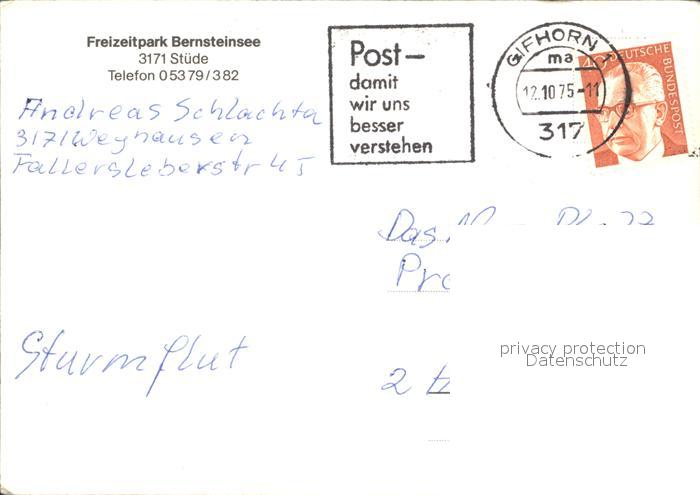 Freizeitpark Bernsteinsee
3171 Stüde
Telefon 0 53 79 / 3 82
Andreas Schlachta
3171 Weyhausen
Fallersleberstr 45
Post–
damit
wir uns
besser
verstehen
GIFHORN 1
ma
12.10.75-11
317
40 DEUTSCHE
BUNDESPOST
Das
Sturmflut
2
privacy protection
Datenschutz